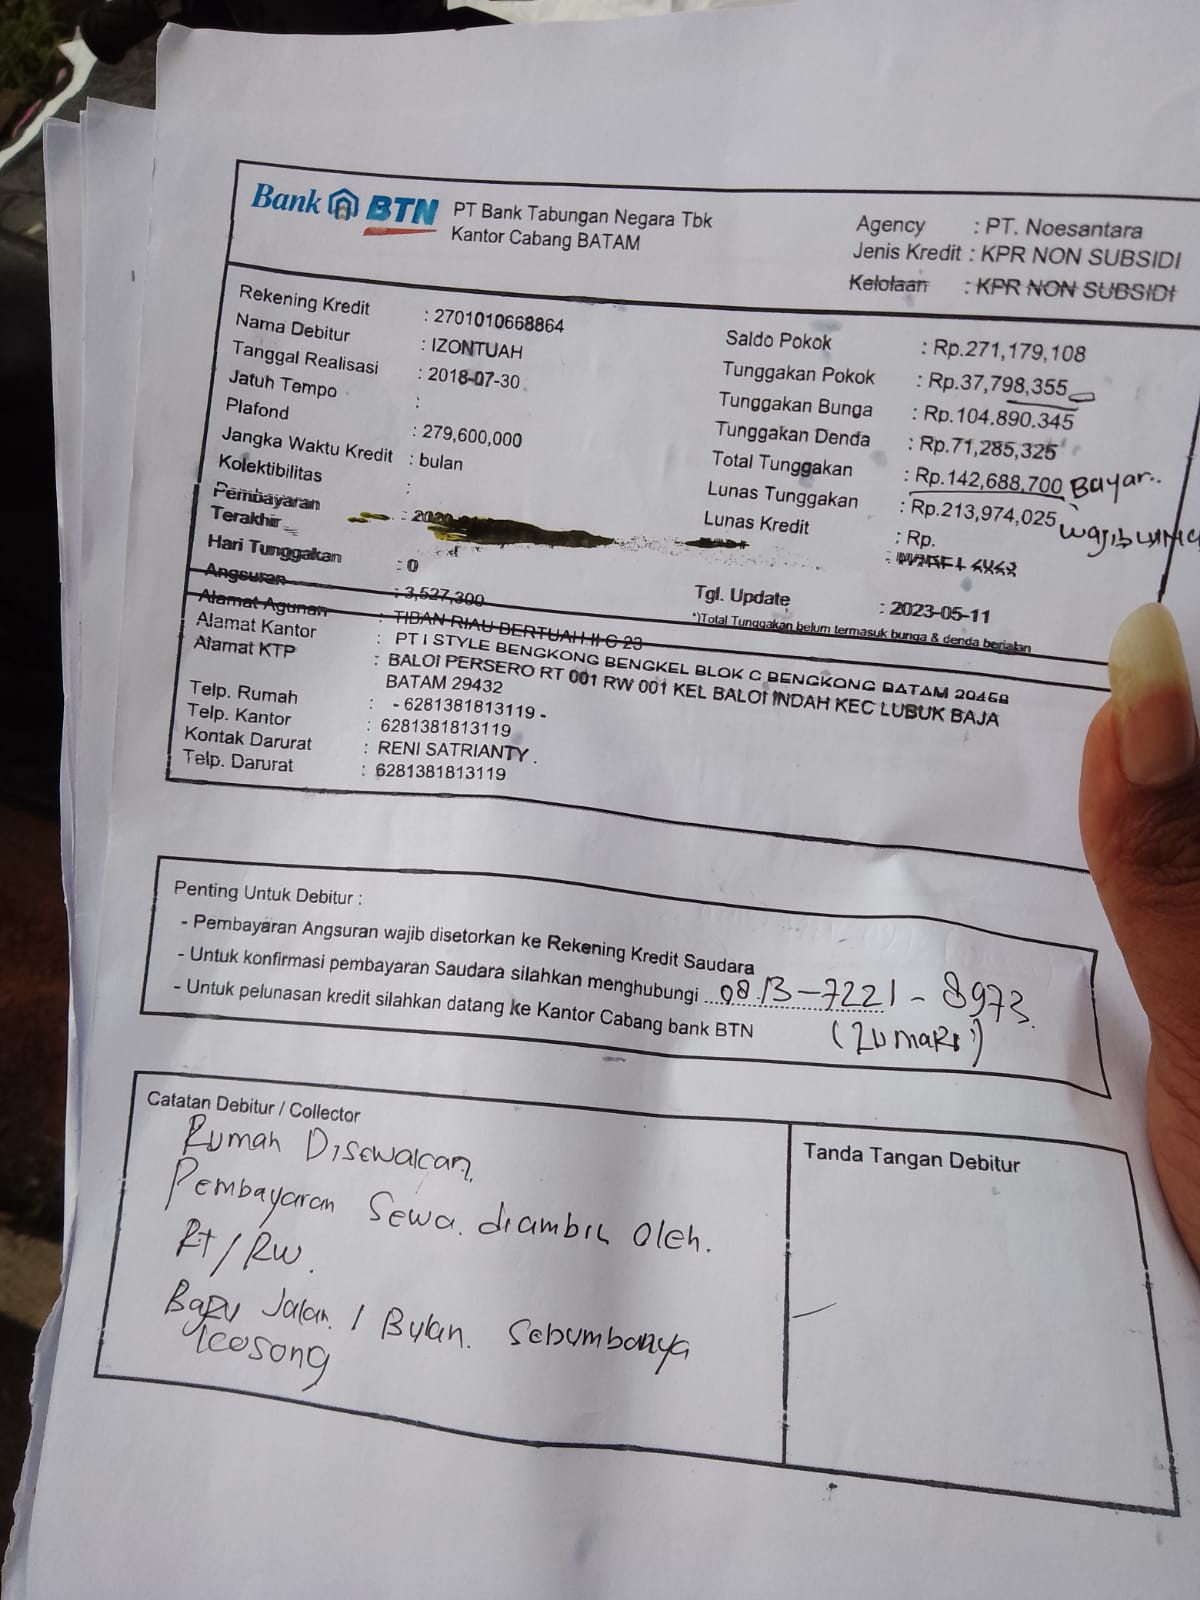 Bank BTN
PT Bank Tabungan Negara Tbk
Kantor Cabang BATAM
Agency : PT. Noesantara
Jenis Kredit : KPR NON SUBSIDI
Kelolaan : KPR NON SUBSIDI
Rekening Kredit : 2701010668864
Nama Debitur : IZONTUAH
Tanggal Realisasi : 2018-07-30
Jatuh Tempo :
Plafond : 279,600,000
Jangka Waktu Kredit : bulan
Kolektibilitas :
Pembayaran
Terakhir : 2020
Hari Tunggakan : 0
Angsuran : 3,527,300
Saldo Pokok : Rp.271,179,108
Tunggakan Pokok : Rp.37,798,355
Tunggakan Bunga : Rp.104.890.345
Tunggakan Denda : Rp.71,285,325
Total Tunggakan : Rp.142,688,700 Bayar..
Lunas Tunggakan : Rp.213,974,025 Wajib
Lunas Kredit : Rp.
Tgl. Update : 2023-05-11
*)Total Tunggakan belum termasuk bunga & denda berjalan
Alamat Agunan : TIBAN RIAU BERTUAH II C 23
Alamat Kantor : PT I STYLE BENGKONG BENGKEL BLOK C BENGKONG BATAM 29458
Alamat KTP : BALOI PERSERO RT 001 RW 001 KEL BALOI INDAH KEC LUBUK BAJA
BATAM 29432
Telp. Rumah : - 6281381813119 -
Telp. Kantor : 6281381813119
Kontak Darurat : RENI SATRIANTY .
Telp. Darurat : 6281381813119
Penting Untuk Debitur :
- Pembayaran Angsuran wajib disetorkan ke Rekening Kredit Saudara
- Untuk konfirmasi pembayaran Saudara silahkan menghubungi 0813-7221-8973.
- Untuk pelunasan kredit silahkan datang ke Kantor Cabang bank BTN
(ZUMARI)
Catatan Debitur / Collector
Rumah Disewakan.
Pembayaran Sewa. diambil oleh.
RT/RW.
Baru Jalan. 1 Bulan. Sebumbanya
kosong
Tanda Tangan Debitur